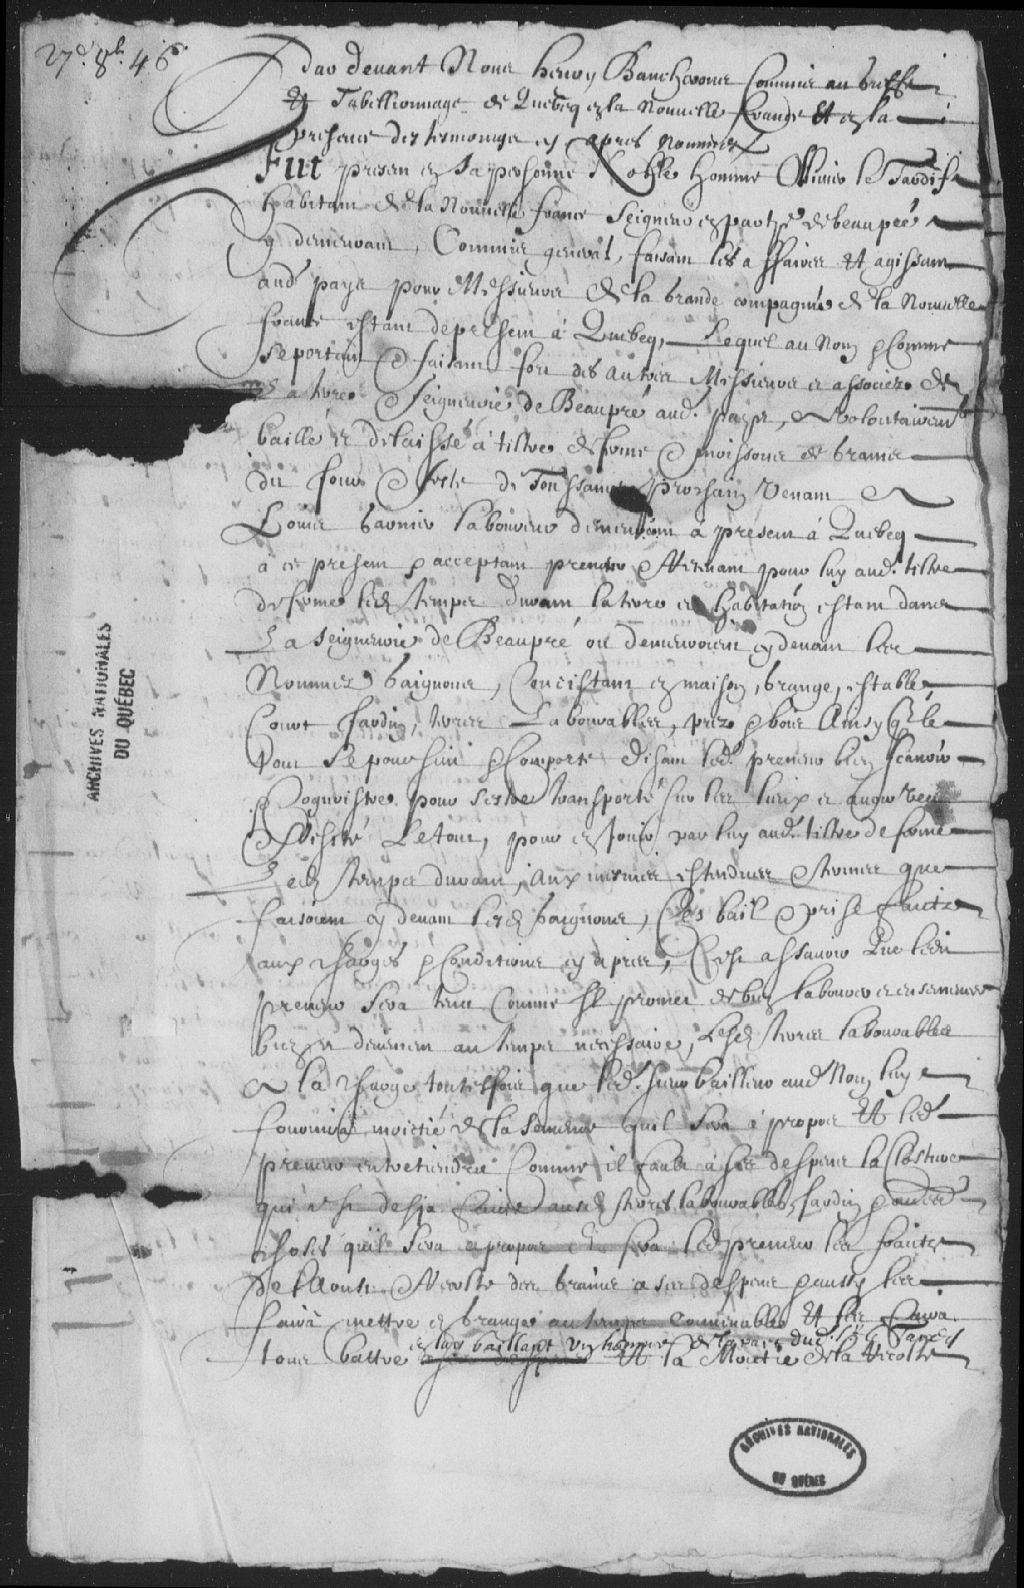 27e 8b. 46
Par devant Nous henry Bancheron Commis au Greffe
et Tabellionnage de Quebecq en la Nouvelle france et en la
presence des tesmoings cy apres nommez
Fut present en sa personne Noble homme Ollivier le Tardif
habitant de la Nouvelle france Seigneur en partye de beaupré
y demeurant, Commis general, faisant les affaires et agissant
aud. pays pour Messieurs de la Grande compagnie de la Nouvelle
france estant de present à Quebeq, Lequel au Nom & Comme
se portant & faisant fort des autres Messieurs et associez de
la terre & seigneurie de Beaupré aud. pays, volontairemt
baillé et delaissé à tiltre de ferme & moissons de Grains
du Jour & feste de Toussaincts prochain Venant
Louis Garnier laboureur demeurant à present à Quebeq
à ce present & acceptant preneur & retenant pour luy aud. tiltre
de ferme led. temps durant la terre et habitation estant dans
La Seigneurie de Beaupré ou demeuroient cy devant les
Nommez Gaignons, Concistant en maison, Grange, estable,
Court Jardin, terres Labourables, prez & bois Ainsy qle
tout se poursuit & Comporte disant led. preneur bien scavoir
& Cognoistre pour s'estre transporté sur les lieux et auoir veu
& Visité Le tout, pour en Jouir par luy aud. tiltre de ferme
Led. temps durant, aux mesmes estendues & termes que
faisoient cy devant lesd. Gaignons, Ces bail & prise faicts
aux charges & Conditions cy apres, C'est assavoir Que ledit
preneur sera tenu Comme Il promet de bien labourer et ensemencer
bien et deuement au temps necessaire, Lesd. terres labourables
A la charge touteffois que led. sieur bailleur aud. Nom luy
fournira moictié de la semence qu'il sera à propos Et led.
preneur entretiendra Comme il fault à ses despens la Closture
qui est desja faicte ausd. terres labourables, Jardin & autres
choses qu'il sera à propos Et fera led. preneur les fraictz
de l'Aoust & recolte des Grains à ses despens & aussy les
faira mettre en Grange au temps Convenable Et les faira
en luy baillant un homme de la part dud. sr le Tardif
tous battre à ses despens Et la Moictié de la recolte
ARCHIVES NATIONALES
DU QUÉBEC
ARCHIVES NATIONALES
DU QUÉBEC